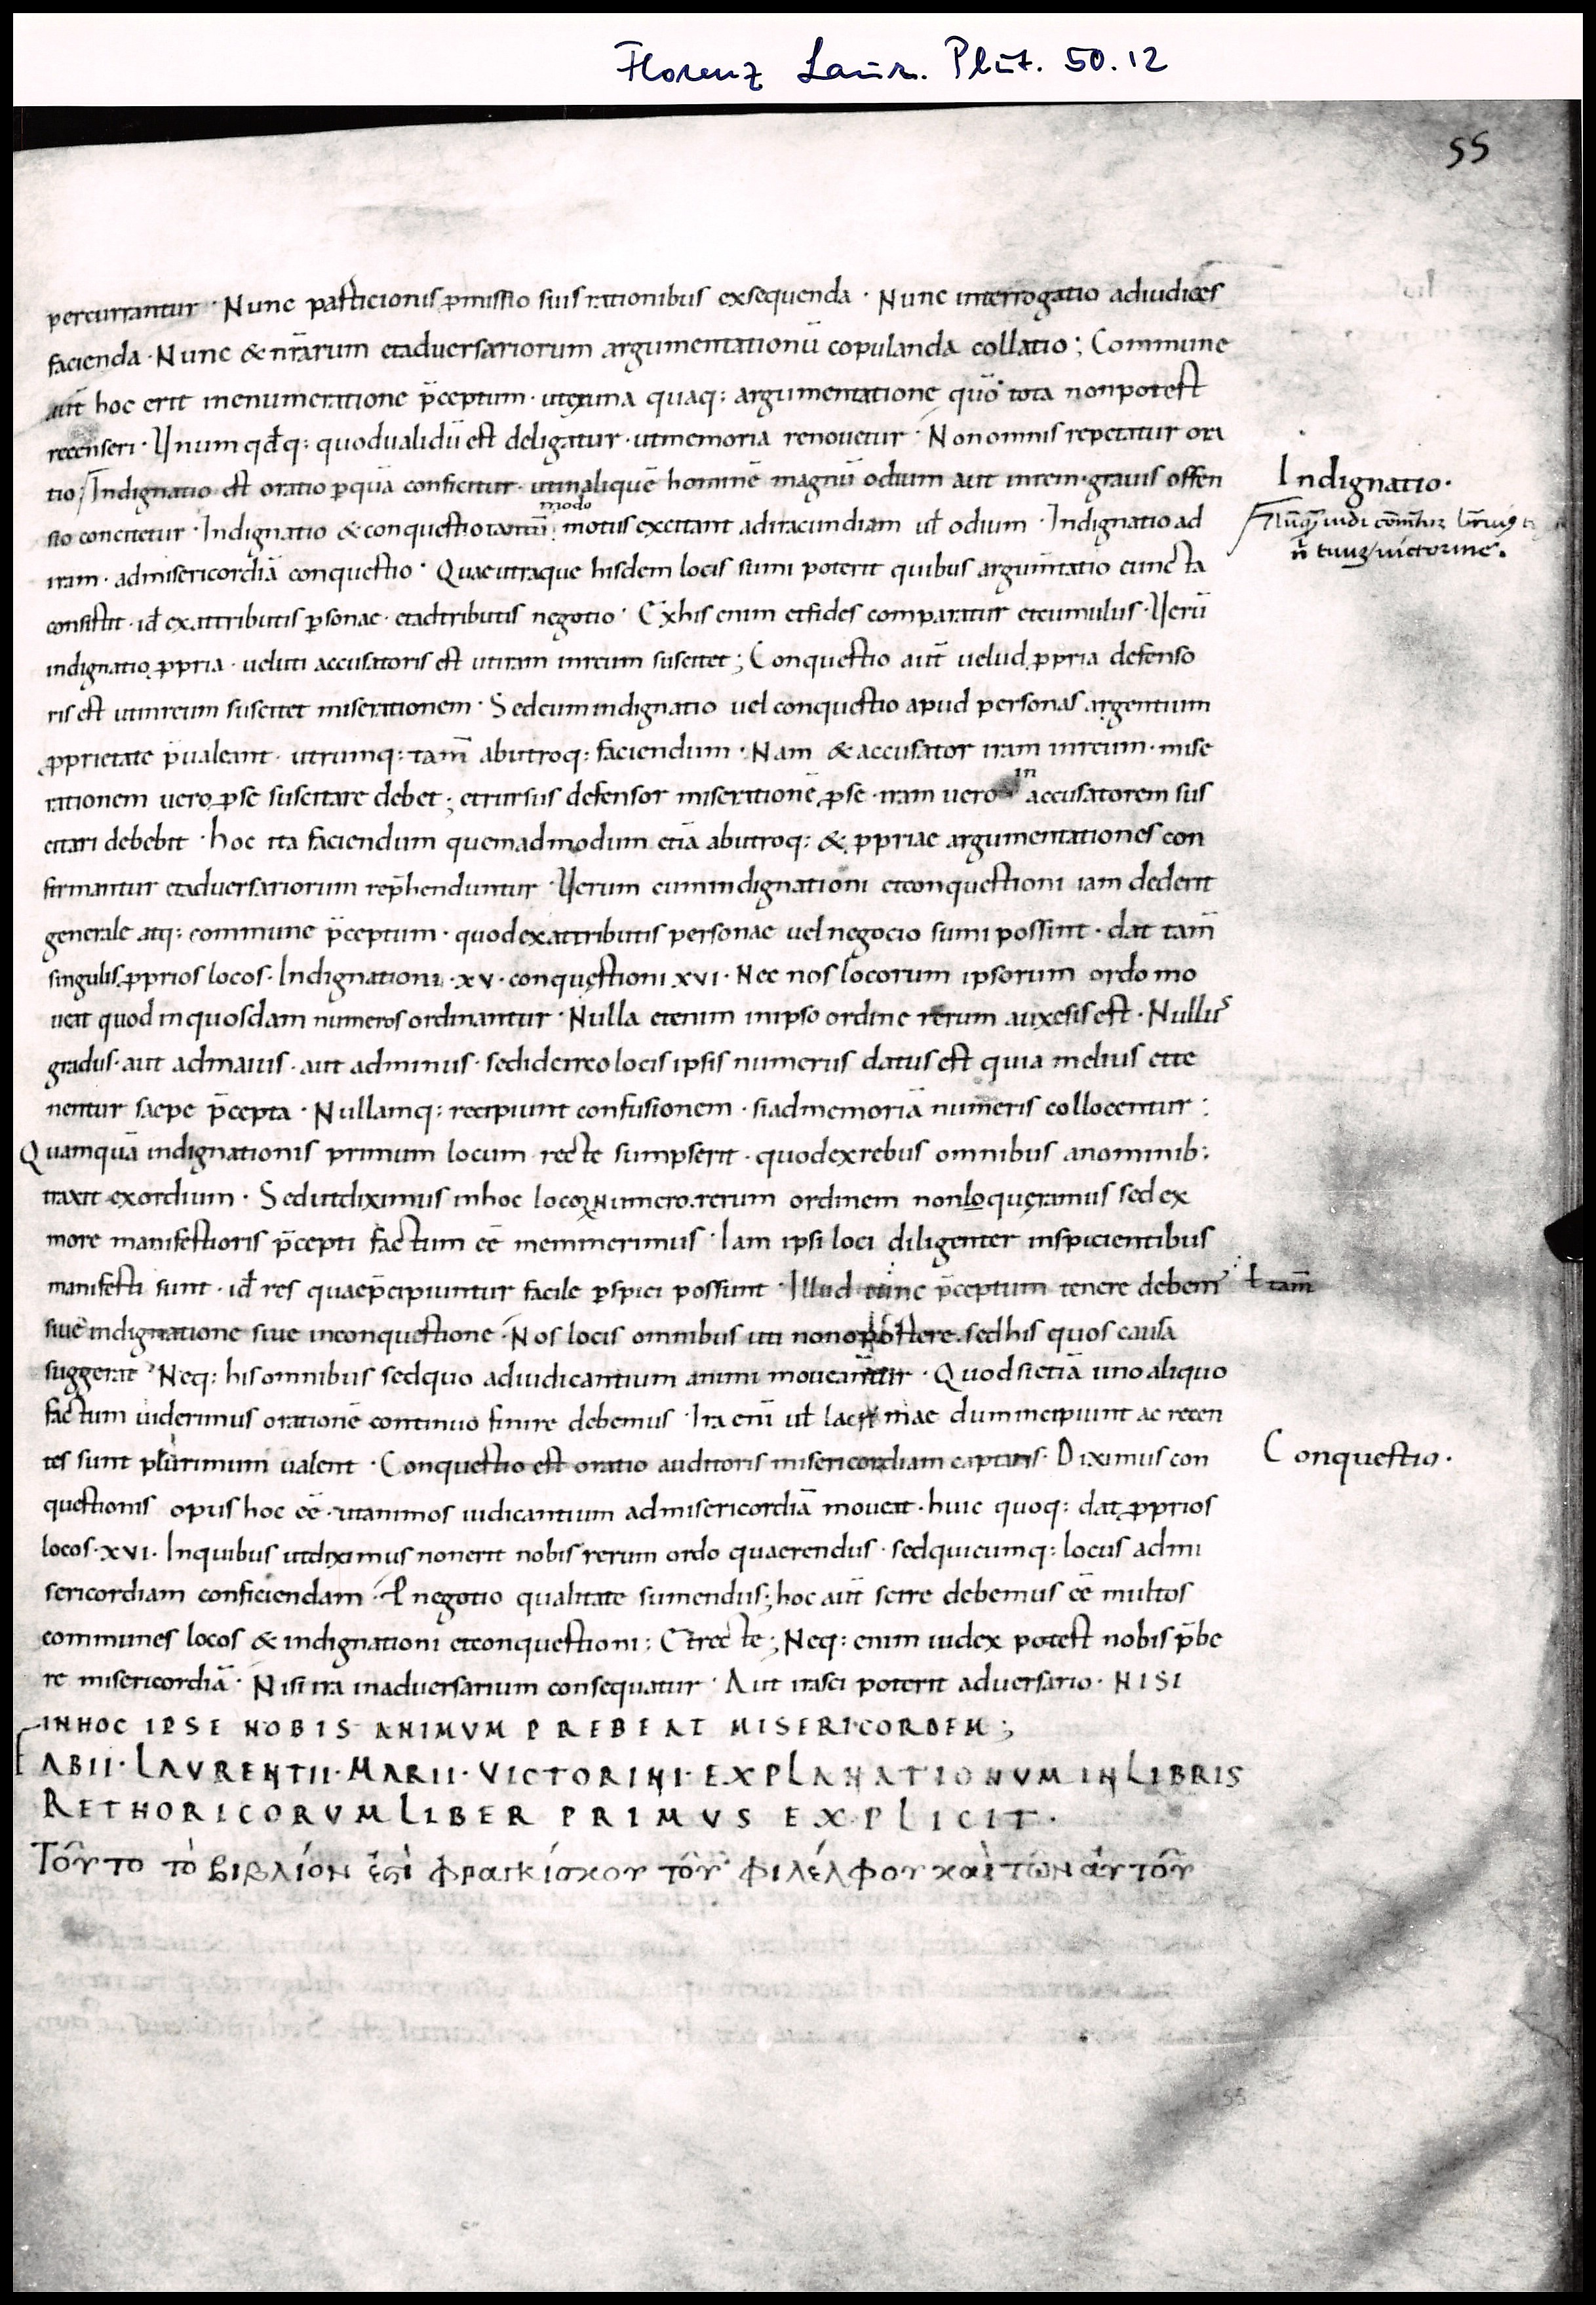 Florenz Laur. Plut. 50.12
55
percurrantur · Nunc particionis ꝓmissio suis rationibus exsequenda · Nunc interrogatio adiudices
facienda · Nunc & nr̄arum etadversariorum argumentationū copulanda collatio ; Commune
aut̄ hoc erit inenumeratione p̄ceptum · utexuna quaq: argumentatione quō tota nonpotest
recenseri · Unum qd̄q: quodualidū est deligatur · utmemoria renouetur · Nonomnis repetatur ora
tio / Indignatio est oratio ꝑquā conficitur · utinaliquē hominē magnū odium aut inrem · grauis offen
modo
sio concitetur · Indignatio & conquestio tantū motus excitant adiracundiam ul̄ odium · Indignatio ad
iram · admisericordiā conquestio · Quae utraque hisdem locis sumi poterit quibus argum̄tatio cuncta
consistit · id̄ exattributis ꝑsonae · etadtributis negotio · Exhis enim etfides comparatur etcumulus · Uerū
indignatio ꝓpria · ueluti accusatoris est utiram inreum suscitet ; Conquestio aut̄ uelud ꝓpria defenso
ris est utinreum suscitet miserationem · Sedcumindignatio uel conquestio apud personas argentium
ꝓprietate p̄ualeant · utrumq: tam̄ abutroq: faciendum · Nam & accusator iram inreum · mise
in
rationem uero ꝓse suscitare debet ; etrursus defensor miserationē ꝓse · iram uero accusatorem sus
citari debebit · hoc ita faciendum quemadmodum etiā abutroq: & ꝓpriae argumentationes con
firmantur etadversariorum rep̄henduntur · Uerum cumindignationi etconquestioni iam dederit
generale atq: commune p̄ceptum · quodexattributis personae uelnegocio sumi possint · dat tam̄
singulis ꝓprios locos · Indignationi · xv · conquęstioni xvi · Nec nos locorum ipsorum ordo mo
ueat quod inquosdam numeros ordinantur · Nulla etenim inipso ordine rerum auxesis est · Nullus
gradus · aut admaius · aut adminus · sedideirco locis ipsis numerus datus est quia melius ette
nentur saepe p̄cepta · Nullamq: recipiunt confusionem · siadmemoriā numeris collocentur :
Quamquā indignationis primum locum recte sumpserit · quodexrebus omnibus anominib:
traxit exordium · Sedutdiximus inhoc locoꝝ numero rerum ordinem nonloquęramus sed ex
more manifestioris p̄cepti factum eē meminerimus · Iam ipsi loci diligenter inspicientibus
manifesti sunt · id̄ res quaep̄cipiuntur facile ꝑspici possunt · Illud tunc p̄ceptum tenere debem̄ ł tam̄
siue indignatione siue inconquestione · Nos locis omnibus uti nonoportere · sedhis quos causa
suggerat · Neq: hisomnibus sedquo adiudicantium animi moueantur · Quodsietiā uno aliquo
factum uiderimus orationē continuo finire debemus · Ira enī ul̄ lacrimae dumincipiunt ac recen
tes sunt plurimum ualent · Conquestio est oratio auditoris misericordiam captans · Diximus con
questionis opus hoc eē · utanimos iudicantium admisericordiā moueat · huic quoq: dat ꝓprios
locos · xvi · Inquibus utdiximus nonerit nobis rerum ordo quaerendus · sedquicumq: locus admi
sericordiam conficiendam · ł negotio qualitate sumendus ; hoc aut̄ scire debemus eē multos
communes locos & indignationi etconquestioni ; Etrecte ; Neq: enim iudex potest nobis p̄be
re misericordiā · Nisi ira inadversarium consequatur · Aut irasci poterit adversario · NISI
INHOC IPSE NOBIS ANIMVM PREBEAT MISERICORDEM ;
FABII · LAVRENTII · MARII · VICTORINI · EXPLANATIONVM IN LIBRIS
RETHORICORVM LIBER PRIMVS EXPLICIT ·
Τοῦτο τὸ βιβλίον ἐστὶ φραγκίσκου τοῦ φιλέλφου καὶ τῶν αὐτοῦ
Indignatio ·
Conquestio ·